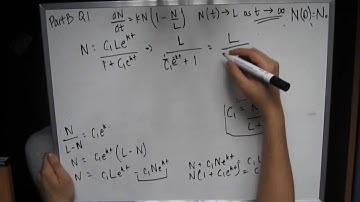 Part B Q1 dN/dt = kN(1 - N/L) N(t) → L as t → ∞ N(0) = N₀
N = C₁Le^kt / 1 + C₁e^kt → L / C₁e^kt + 1 = L
C₁ = N
N / L-N = C₁e^k
N = C₁e^kt (L - N)
N = C₁Le^kt - C₁Ne^kt
N + C₁Ne^kt = C₁L
N(1 + C₁e^kt) = C